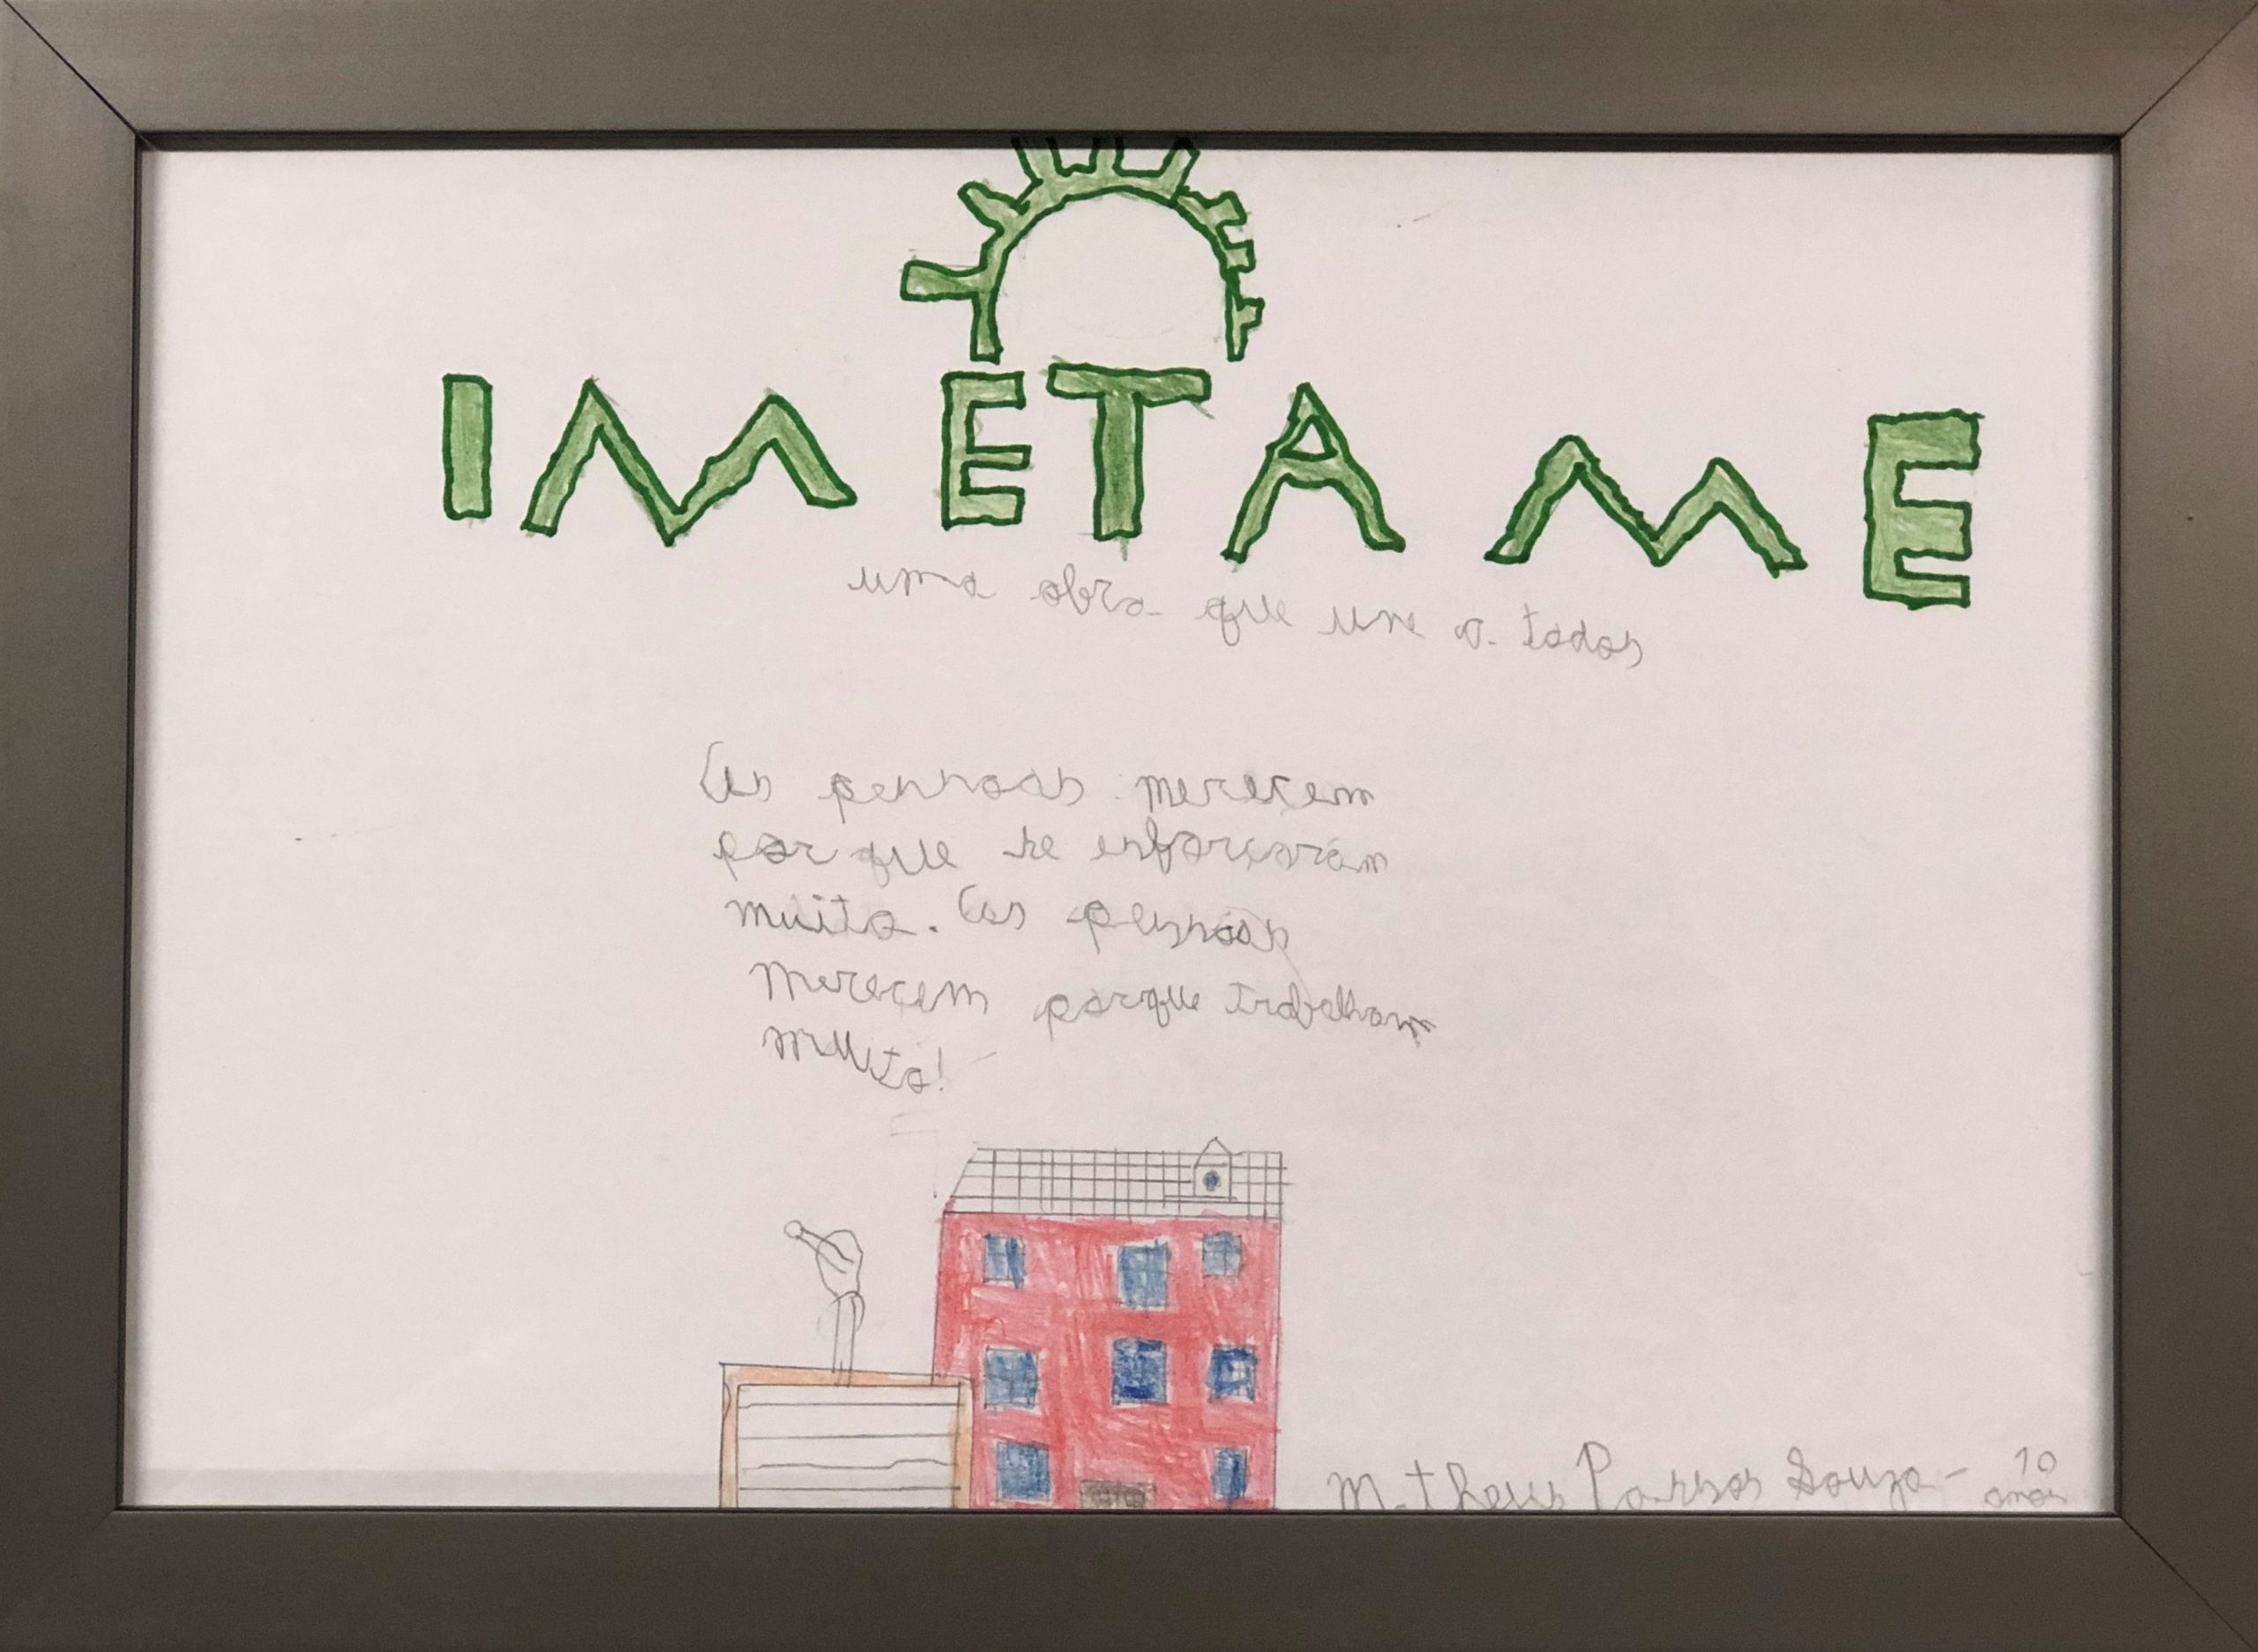 IMETAME
uma obra que une a todos
As pessoas merecem
por que se esforçaram
muito. As pessoas
Merecem porque trabalham
muito!
Matheus Passos Souza - 10
anos